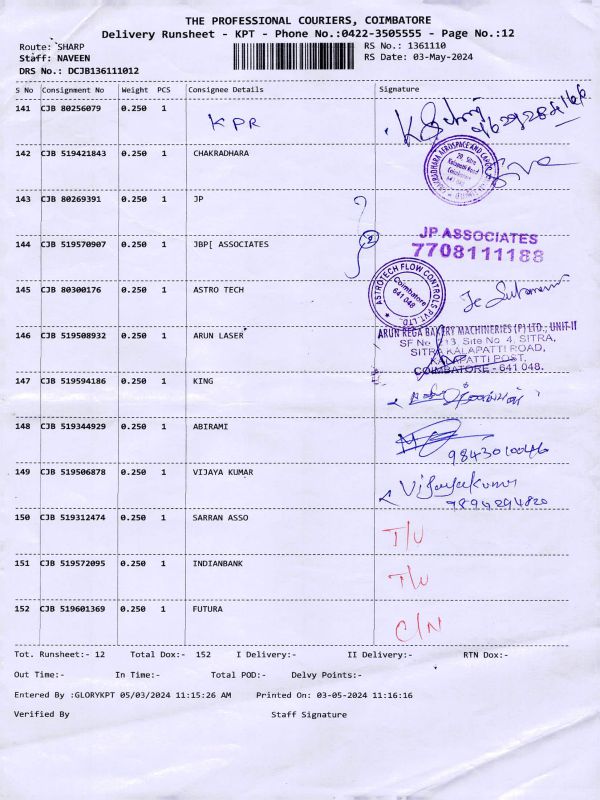 THE PROFESSIONAL COURIERS, COIMBATORE
Delivery Runsheet - KPT - Phone No.:0422-3505555 - Page No.:12
Route: SHARP RS No.: 1361110
Staff: NAVEEN RS Date: 03-May-2024
DRS No.: DCJB136111012
S No Consignment No Weight PCS Consignee Details Signature
141 CJB 80256079 0.250 1
KPR
142 CJB 519421843 0.250 1 CHAKRADHARA
143 CJB 80269391 0.250 1 JP
2
JP ASSOCIATES
144 CJB 519570907 0.250 1 JBP[ ASSOCIATES
7708111188
ASTROTECH FLOW CONTROLS PVT. LTD.
Coimbatore
641 048
145 CJB 80300176 0.250 1 ASTRO TECH
146 CJB 519508932 0.250 1 ARUN LASER
ARUN REGA BAKERY MACHINERIES (P) LTD., UNIT-II
SF No 213, Site No 4, SITRA,
SITRA KALAPATTI ROAD,
KALAPATTI POST,
COIMBATORE - 641 048.
147 CJB 519594186 0.250 1 KING
148 CJB 519344929 0.250 1 ABIRAMI
149 CJB 519506878 0.250 1 VIJAYA KUMAR
Vijayakumar
7894294820
150 CJB 519312474 0.250 1 SARRAN ASSO
T/U
151 CJB 519572095 0.250 1 INDIANBANK
T/U
152 CJB 519601369 0.250 1 FUTURA
C/N
Tot. Runsheet:- 12 Total Dox:- 152 I Delivery:- II Delivery:- RTN Dox:-
Out Time:- In Time:- Total POD:- Delvy Points:-
Entered By :GLORYKPT 05/03/2024 11:15:26 AM Printed On: 03-05-2024 11:16:16
Verified By Staff Signature